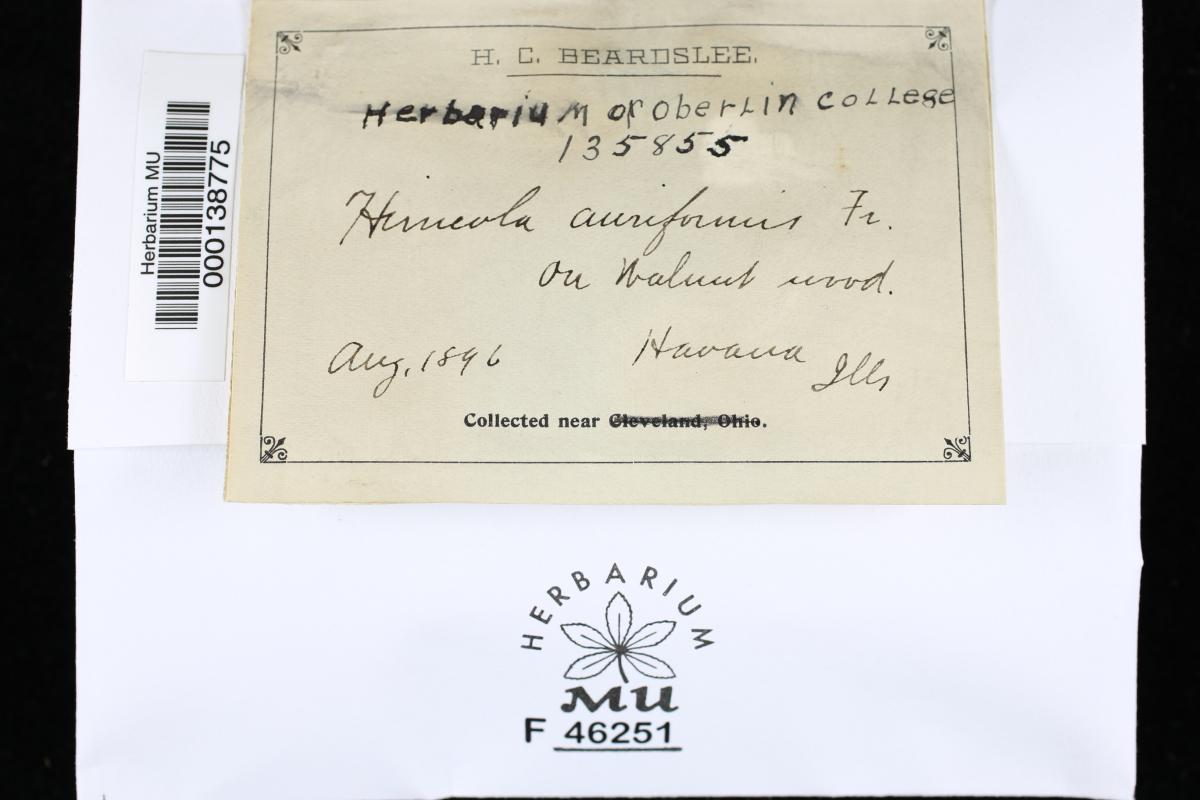 H. C. BEARDSLEE.
Herbarium of Oberlin College
135855
Hirneola auriformis Fr.
On Walnut wood.
Aug, 1896
Havana Ills
Collected near Cleveland, Ohio.
Herbarium MU
000138775
HERBARIUM
MU
F 46251